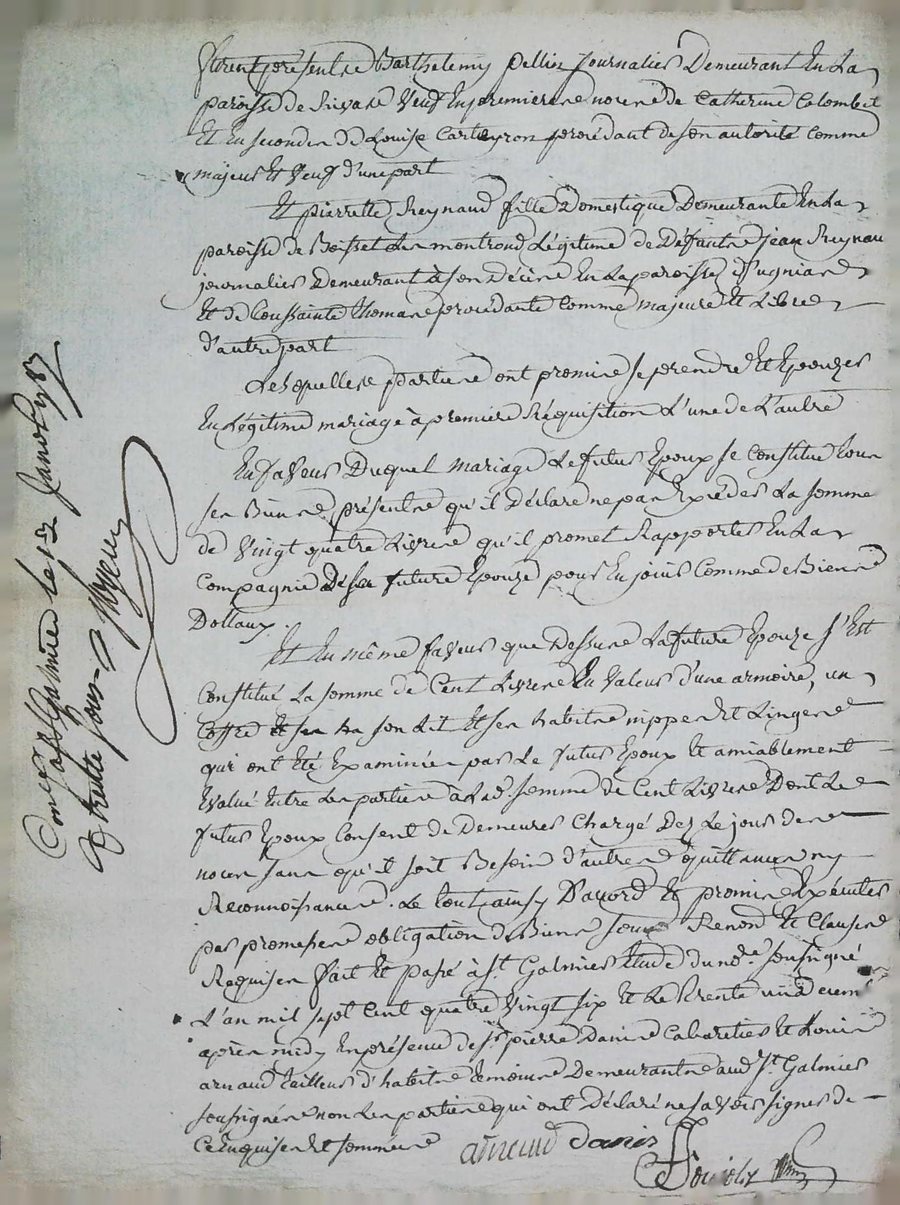 furent présents Barthelemy pellin journalier Demeurant En La
paroisse de Rivas Veuf En premieres noces de Catherine Colombet
Et En secondes de Louise Carteyron procédant de son autorité comme
majeur Et Veuf d'une part
Et pierrette Reynaud fille Domestique Demeurante En La
paroisse de Boisset Les montrond Légitime de Défunts jean Reynau
journalier Demeurant à son Décès En La paroisse
Et de Toussainte Thomas procédante comme majeure Et Libre
d'autre part
Lesquelles parties ont promis se prendre Et Epouzer
En Légitime mariage à premiere Réquisition L'une de L'autre
En faveur Duquel mariage Le futur Epoux se Constitue tous
ses Biens présents qu'il Déclare ne pas Excéder La somme
de Vingt quatre Livres qu'il promet Rapporter En La
Compagnie De sa future Epouze pour En jouir Comme de Biens
Dottaux.
Et En même faveur que Dessus La future Epouze s'Est
Constitué La somme de Cent Livres En Valeur d'une armoire, un
Coffre son Lit Et ses habits nippes Et Linges
qui ont Eté Examinés par Le futur Epoux Et amiablement
Evalué Entre Les parties à Lad. somme de Cent Livres Dont Le
futur Epoux Consent de Demeurer Chargé Dez Le jour des
noces sans qu'il soit Besoin d'autres quittances ny
Reconnoissances. Le tout ainsy D'acord Et promis Exécuter
par promesses obligation de Biens Renond. Et Clauses
Requises fait Et passé à St Galmier Etude du nore. soussigné
L'an mil sept Cent quatre Vingt six Et Le trente un Xcembre
après midy En présence de Sr. pierre Danis Cabaretier Et Louis
arnaud tailleur d'habits témoins Demeurants aud. St. Galmier
soussignés non Les parties qui ont Déclaré ne savoir signer de
Ce Enquises Et sommées
arnaud Danis
Conlé à St Galmier Le 12 Janvr 1787